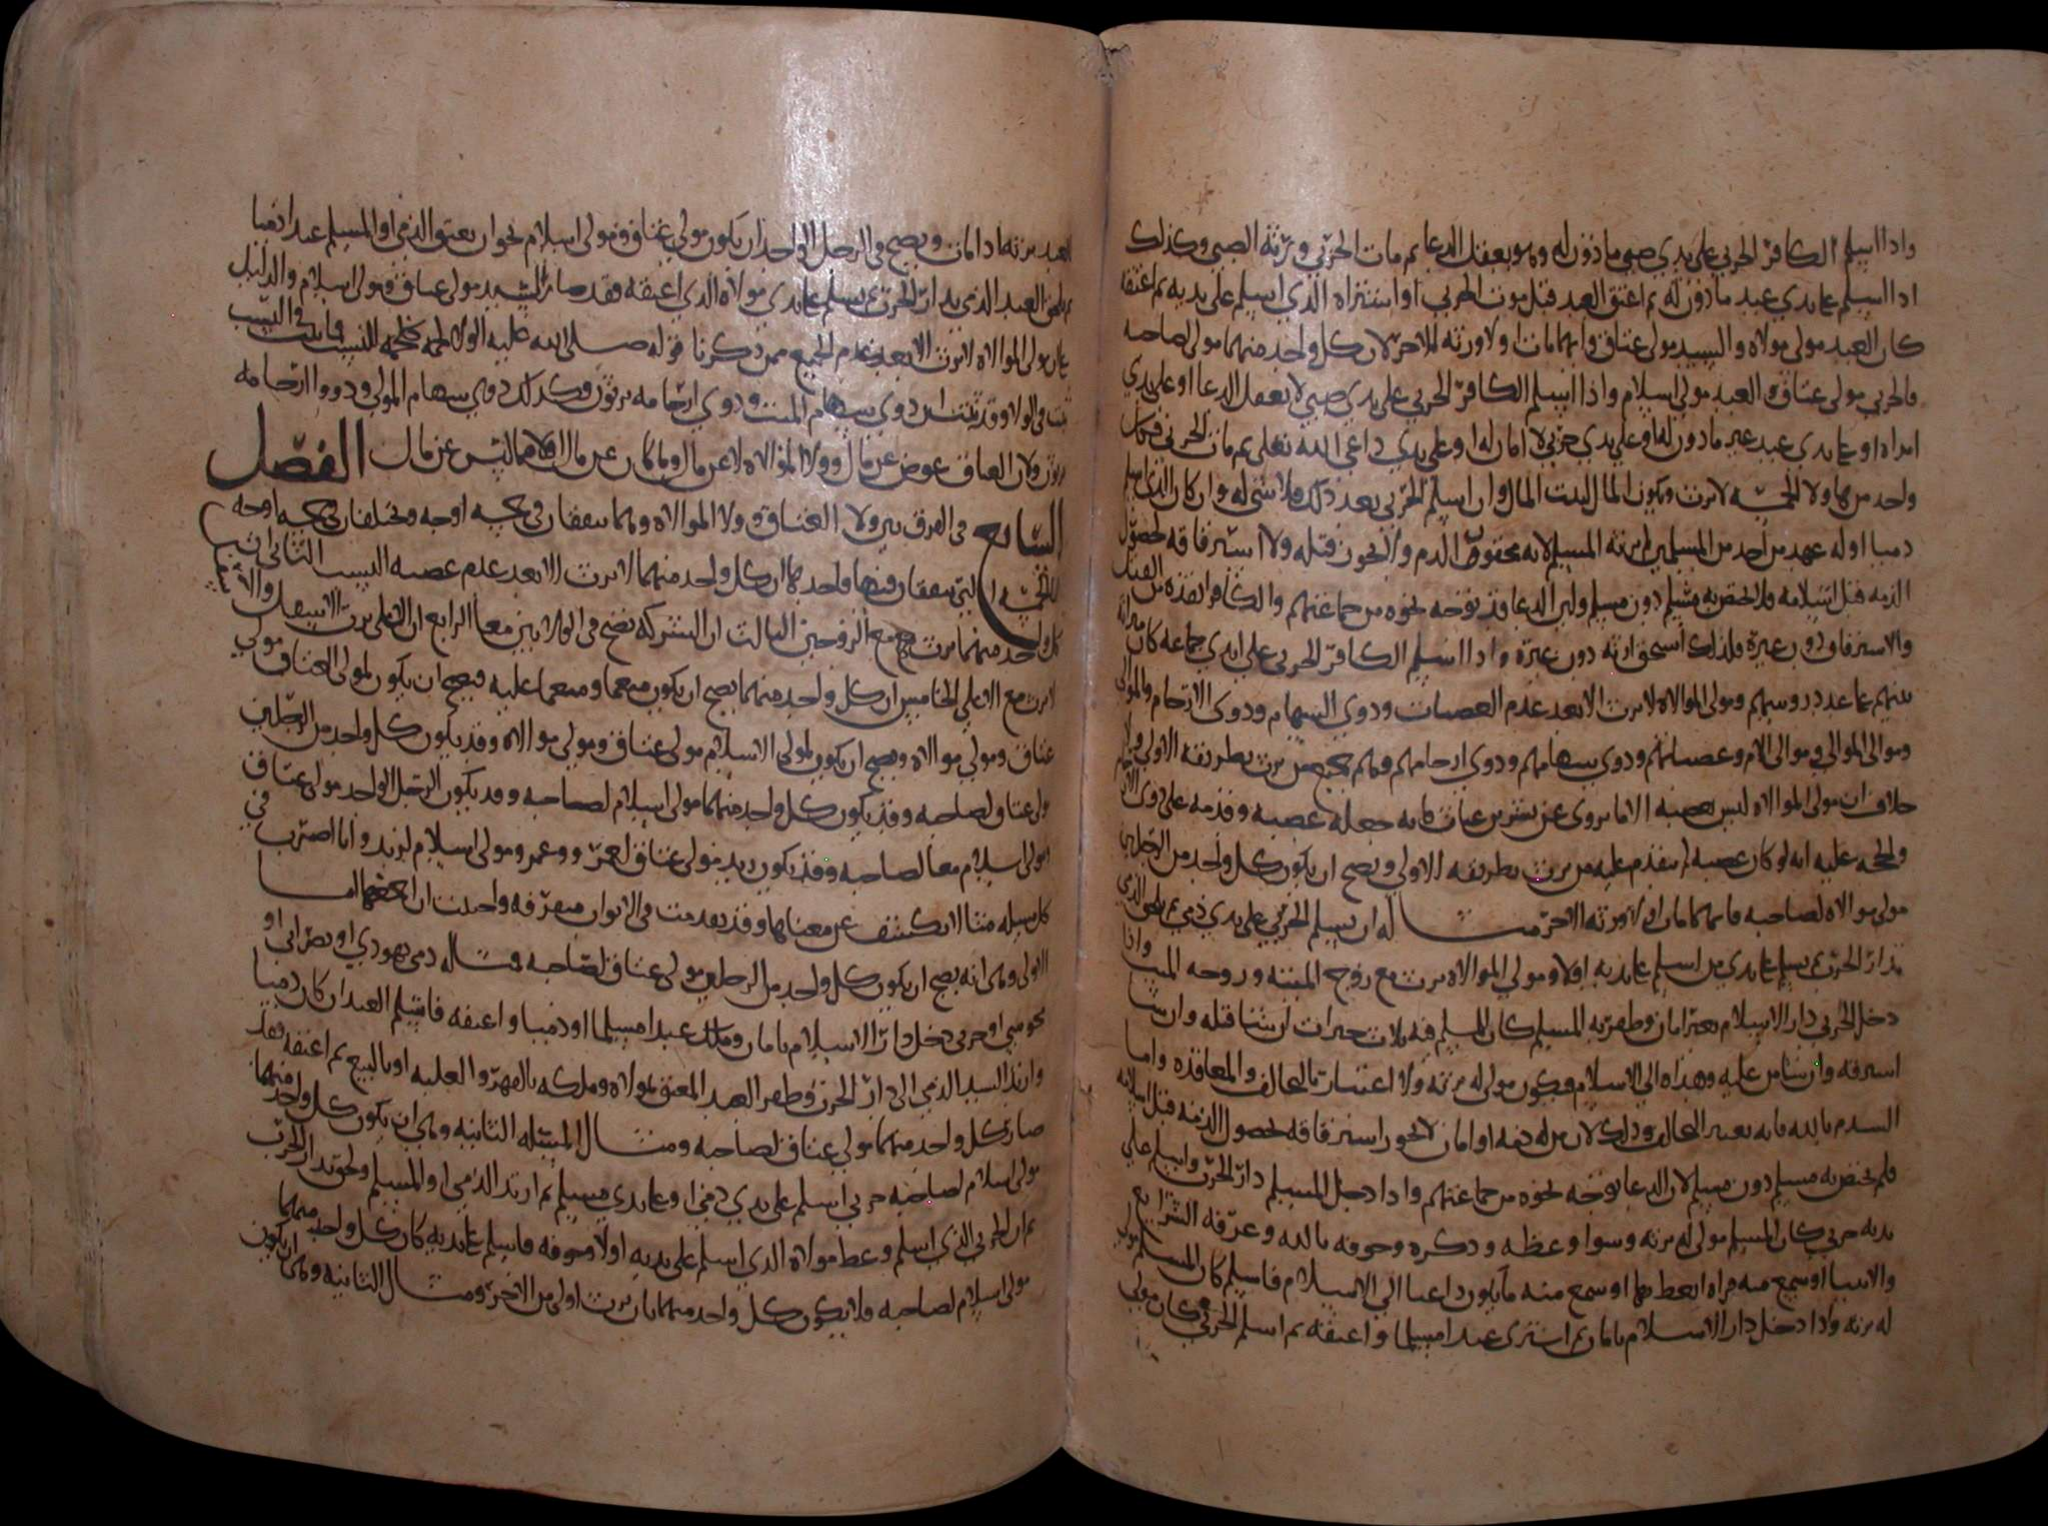 واذا اسلم الكافر الحربي على يدي صبي ماذون له وهو يعقل الدعا ثم مات الحربي ورثه الصبي وكذلك
اذا اسلم على يدي عبد ماذون له ثم اعتق العبد قبل موت الحربي او اشتراه الذي اسلم على يديه ثم اعتقه
كان العبد مولى مولاه والسيد مولى عتاق وايهما مات اولا ورثه الاخر لان كل واحد منهما مولى لصاحبه
فالحربي مولى عتاق والعبد مولى اسلام واذا اسلم الكافر الحربي على يدي صبي لا يعقل الدعا او على يدي
امراه او على يدي عبد غير ماذون له او على يدي حربي لا امان له او على يدي داعي الله تعالى ثم مات الحربي فكل
واحد من هاولا الخمسه لا يرث ويكون المال لبيت المال وان اسلم الحربي بعد ذلك فلا شي له وان كان الذي اسلم
ذميا او له عهد من احد من المسلمين لم يرثه المسلم لانه محقون الدم ولا يجوز قتله ولا استرقاقه لحصول
الذمه قبل اسلامه فلا يختص به مسلم دون مسلم وليس الدعا قد توجه نحوه من جماعتهم والكافر انقذه من القتل
والاسترقاق دون غيره فلذلك استحق ارثه دون غيره واذا اسلم الكافر الحربي على ايدي جماعه كان ميراثه
بينهم على عدد روسهم ومولى الموالاه لا يرث الا بعد عدم العصبات وذوي السهام وذوي الارحام والموالي
وموالي الموالي وموالي الام وعصباتهم وذوي سهامهم وذوي ارحامهم وهم جميع من يرث بطريقه الاولى ولا
خلاف ان مولى الموالاه ليس بعصبه الا ما يروى عن بشر بن غياث فانه جعله عصبه وقدمه على ذوي الارحام
والحجه عليه انه لو كان عصبه لم يتقدم عليه من يرث بطريقه الاولى ويصح ان يكون كل واحد من الرجلين
مولى موالاه لصاحبه فايهما مات اولا ورثه الاخر مثاله ان يسلم الحربي على يدي ذمي ثم يلحق الذمي
بدار الحرب ثم يسلم على يدي من اسلم على يديه اولا ومولى الموالاه يرث مع زوج الميته وزوجه الميت واذا
دخل الحربي دار الاسلام بغير امان وظفر به المسلم كان للمسلم فيه ثلاث خيرات ان شا قتله وان شا
استرقه وان شا من عليه وهداه الى الاسلام فيكون مولى له يرثه ولا اعتبار بالتحالف والمعاقده واما
السدم بالله فانه يعتبر التحالف وذلك لان من له ذمه او امان لا يجوز استرقاقه لحصول الذمه قبل اسلامه
فلم يختص به مسلم دون مسلم لان الدعا توجه نحوه من جماعتهم واذا دخل المسلم دار الحرب واسلم على
يديه حربي كان المسلم مولى له يرثه وسوا وعظه وذكره وخوفه بالله وعرفه الشرايع
والانبيا او سمع منه قراه اتعظ بها او سمع منه ما يكون داعيا الى الاسلام فاسلم كان المسلم مولى
له يرثه واذا دخل دار الاسلام بامان ثم اشترى عبدا مسلما واعتقه ثم اسلم الحربي كان مولى
العبد يرثه اذا مات ويصح في الرجل الواحد ان يكون مولى عتاق ومولى اسلام نحو ان يعتق الذمي او المسلم عبدا ذميا
ثم يلحق العبد الذمي بدار الحرب ثم يسلم على يدي مولاه الذي اعتقه فقد صار السيد مولى عتاق ومولى اسلام والدليل
على ان مولى الموالاه لا يرث الا بعد عدم الجميع ممن ذكرنا قوله صلى الله عليه الولا لحمه كلحمه النسب فما ثبت في النسب
ثبت في الولا وقد ثبت ان ذوي سهام الميت وذوي ارحامه يرثون وكذلك ذوي سهام المولى وذووا ارحامه
يرثون ولان العتاق عوض عن مال وولا الموالاه لا عن مال وما كان عن مال اولى مما ليس عن مال الفصل
السابع في الفرق بين ولا العتاق وولا الموالاه وهما يتفقان في خمسه اوجه ويختلفان في خمسه اوجه
فالخمسه التي يتفقان فيها واحدها ان كل واحد منهما لا يرث الا بعد عدم عصبه النسب الثاني ان
كل واحد منهما يرث مع الزوجين الثالث ان الشركه تصح في الولايين معا الرابع ان الاعلى يرث الاسفل والاسفل
لا يرث مع الاعلى الخامس ان كل واحد منهما يصح ان يكون منعما ومنعما عليه فيصح ان يكون لمولى العتاق مولى
عتاق ومولى موالاه ويصح ان يكون لمولى الاسلام مولى عتاق ومولى موالاه وقد يكون كل واحد من الرجلين
مولى عتاق لصاحبه وقد يكون كل واحد منهما مولى اسلام لصاحبه وقد يكون الرجل الواحد مولى عتاق
ومولى اسلام معا لصاحبه وقد يكون زيد مولى عتاق لعمرو وعمرو مولى اسلام لزيد وانا اضرب في
كل مسله مثالا يكشف عن معناها وقد تقدمت في الابواب متفرقه واحببت ان اجمعها اما
الاولى وهي انه يصح ان يكون كل واحد من الرجلين مولى عتاق لصاحبه مثاله ذمي يهودي او نصراني او
مجوسي او حربي دخل دار الاسلام بامان وملك عبدا مسلما او ذميا واعتقه فاسلم العبد ان كان ذميا
وارتد السيد الذمي الى دار الحرب وظفر العبد المعتق بمولاه وملكه بالقهر والغلبه او بالبيع ثم اعتقه فقد
صار كل واحد منهما مولى عتاق لصاحبه ومثال المسله الثانيه وهي ان يكون كل واحد منهما
مولى اسلام لصاحبه حربي اسلم على يدي ذمي او على يدي مسلم ثم ارتد الذمي او المسلم ولحق بدار الحرب
ثم ان الحربي الذي اسلم وعظ مولاه الذي اسلم على يديه اولا وخوفه فاسلم على يديه كان كل واحد منهما
مولى اسلام لصاحبه ولا يكون كل واحد منهما بان يرث اولى من الاخر ومثال الثانيه وهي ان يكون